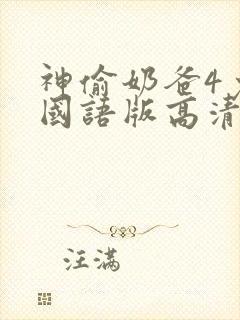 神偷奶爸4
國語版高清
汪滿